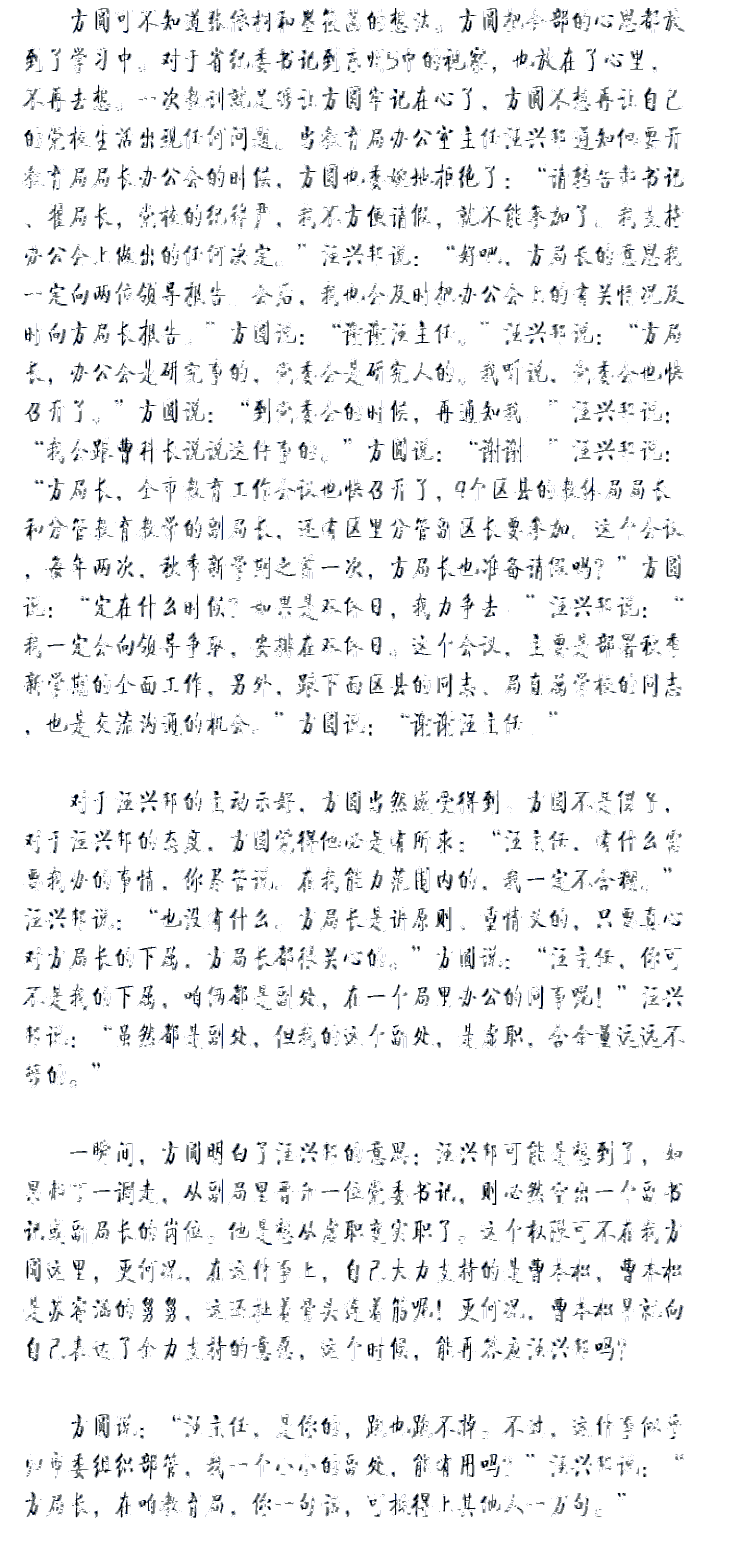 方圆可不知道张依桐和墨筱菡的想法。方圆把全部的心思都放
到了学习中。对于省纪委书记到东州5中的视察，也放在了心里，
不再去想。一次教训就足够让方圆牢记在心了，方圆不想再让自己
的党校生活出现任何问题。当教育局办公室主任汪兴邦通知他要开
教育局局长办公会的时候，方圆也委婉地拒绝了：“请转告郝书记
、翟局长，党校的纪律严，我不方便请假，就不能参加了。我支持
办公会上做出的任何决定。”汪兴邦说：“好吧，方局长的意思我
一定向两位领导报告。会后，我也会及时把办公会上的有关情况及
时向方局长报告。”方圆说：“谢谢汪主任。”汪兴邦说：“方局
长，办公会是研究事的，党委会是研究人的。我听说，党委会也快
召开了。”方圆说：“到党委会的时候，再通知我。”汪兴邦说：
“我会跟曹科长说说这件事的。”方圆说：“谢谢。”汪兴邦说：
“方局长，全市教育工作会议也快召开了，9个区县的教体局局长
和分管教育教学的副局长，还有区里分管副区长要参加。这个会议
，每年两次，秋季新学期之前一次，方局长也准备请假吗？”方圆
说：“定在什么时候？如果是双休日，我力争去。”汪兴邦说：“
我一定会向领导争取，安排在双休日。这个会议，主要是部署秋季
新学期的全面工作，另外，跟下面区县的同志、局直属学校的同志
，也是交流沟通的机会。”方圆说：“谢谢汪主任。”
对于汪兴邦的主动示好，方圆当然感受得到。方圆不是傻子，
对于汪兴邦的态度，方圆觉得他必是有所求：“汪主任，有什么需
要我办的事情，你尽管说。在我能力范围内的，我一定不含糊。”
汪兴邦说：“也没有什么。方局长是讲原则、重情义的，只要真心
对方局长的下属，方局长都很关心的。”方圆说：“汪主任，你可
不是我的下属，咱俩都是副处，在一个局里办公的同事呢！”汪兴
邦说：“虽然都是副处，但我的这个副处，是虚职，含金量远远不
够的。”
一瞬间，方圆明白了汪兴邦的意思：汪兴邦可能是想到了，如
果郝丁一调走，从副局里晋升一位党委书记，则必然空出一个副书
记或副局长的岗位。他是想从虚职变实职了。这个权限可不在我方
圆这里，更何况，在这件事上，自己大力支持的是曹本松，曹本松
是苏容涵的舅舅，这还扯着骨头连着筋呢！更何况，曹本松早就向
自己表达了全力支持的意愿，这个时候，能再答应汪兴邦吗？
方圆说：“汪主任，是你的，跑也跑不掉。不过，这件事似乎
归市委组织部管，我一个小小的副处，能有用吗？”汪兴邦说：“
方局长，在咱教育局，你一句话，可抵得上其他人一万句。”